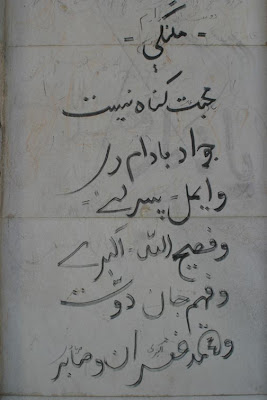 = ملنگی =
محبت گناہ نیست
جواد بادام دی
وایمل = پسرلے =
وفصیح اللہ = اکبرے
وفہیم جان دوست
ومحمد عمران وصابر